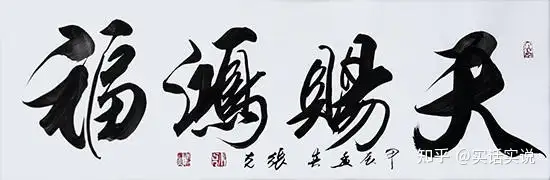 天賜鴻福
甲辰孟 張克
知乎 @实话实说